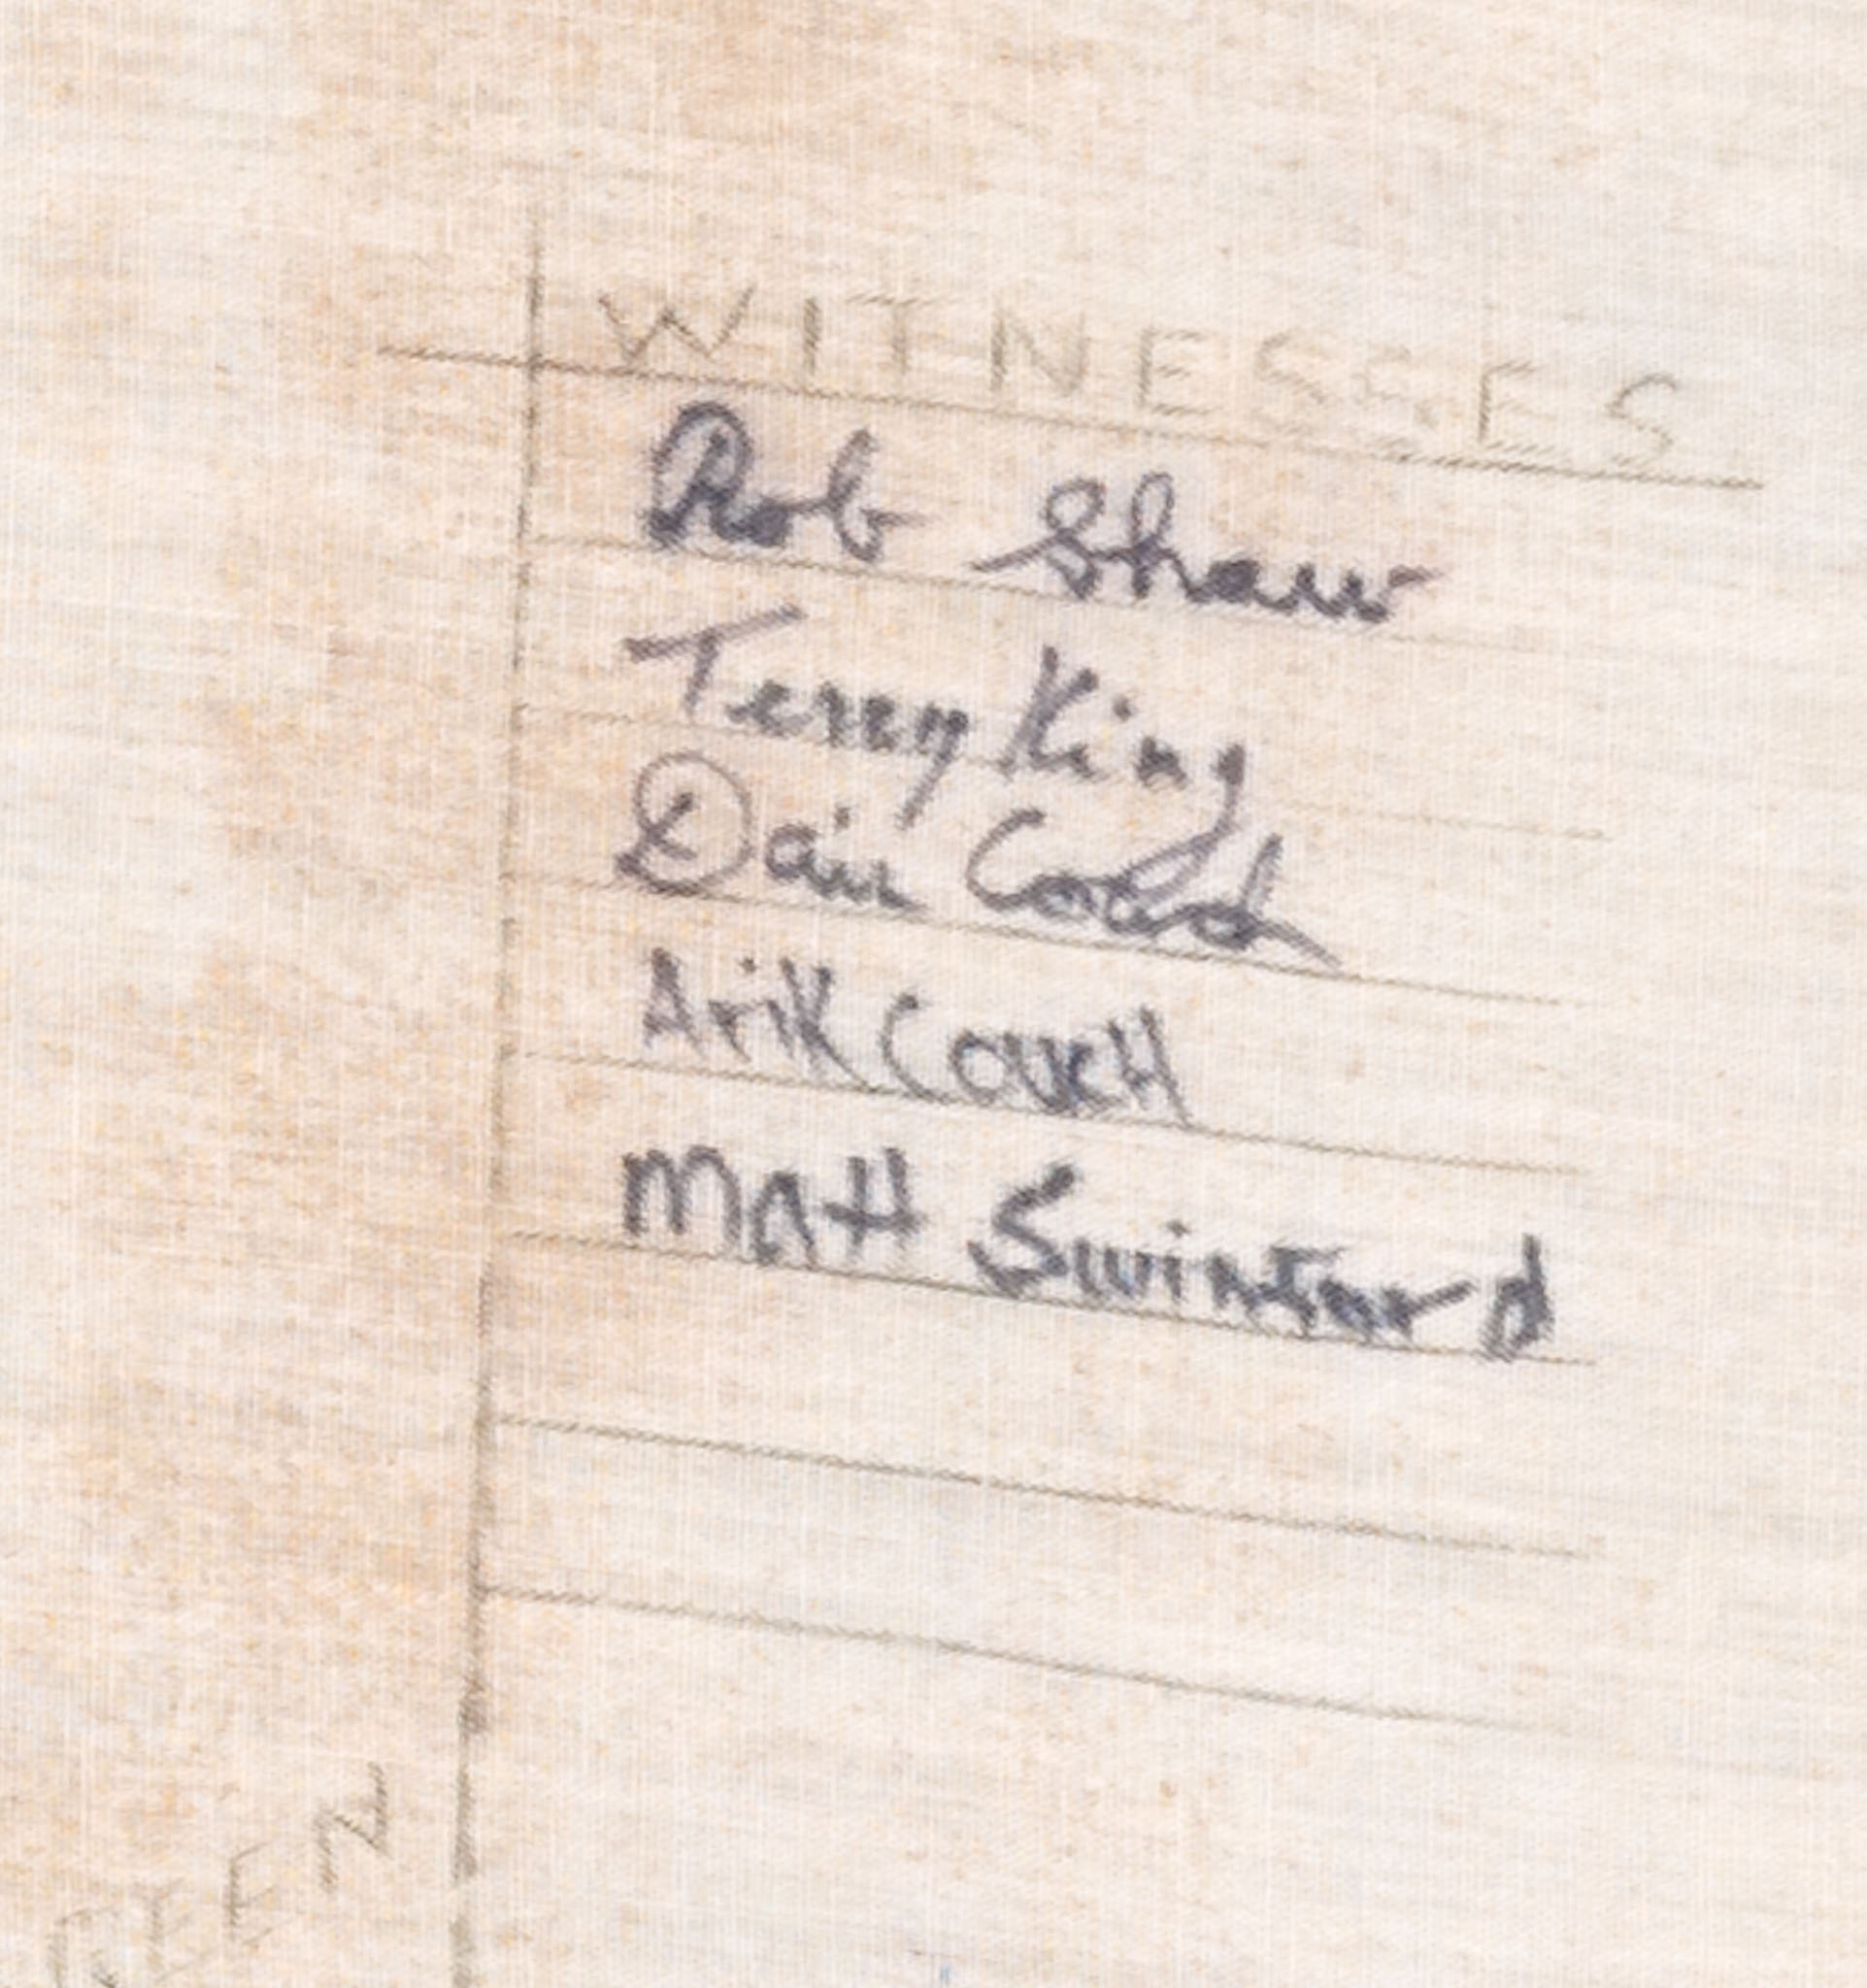 WITNESSES
Rob Shaw
Terry King
Dain Couch
Arik Couch
Matt Swinford
EEN